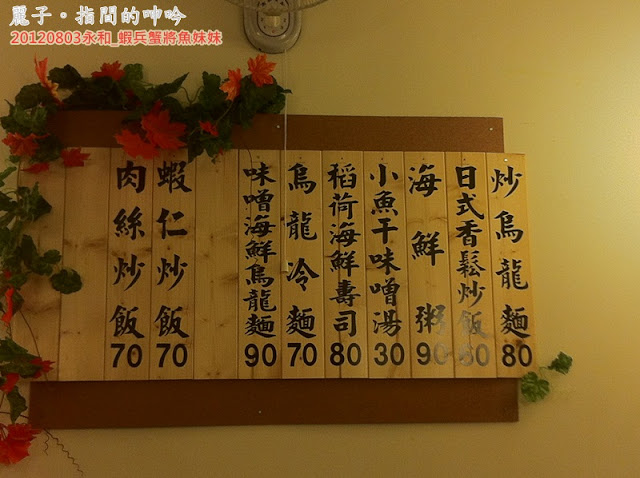 麗子・指間的呻吟
20120803永和_蝦兵蟹將魚妹妹
炒烏龍麵 80
日式香鬆炒飯 60
海鮮粥 90
小魚干味噌湯 30
稻荷海鮮壽司 80
烏龍冷麵 70
味噌海鮮烏龍麵 90
蝦仁炒飯 70
肉絲炒飯 70